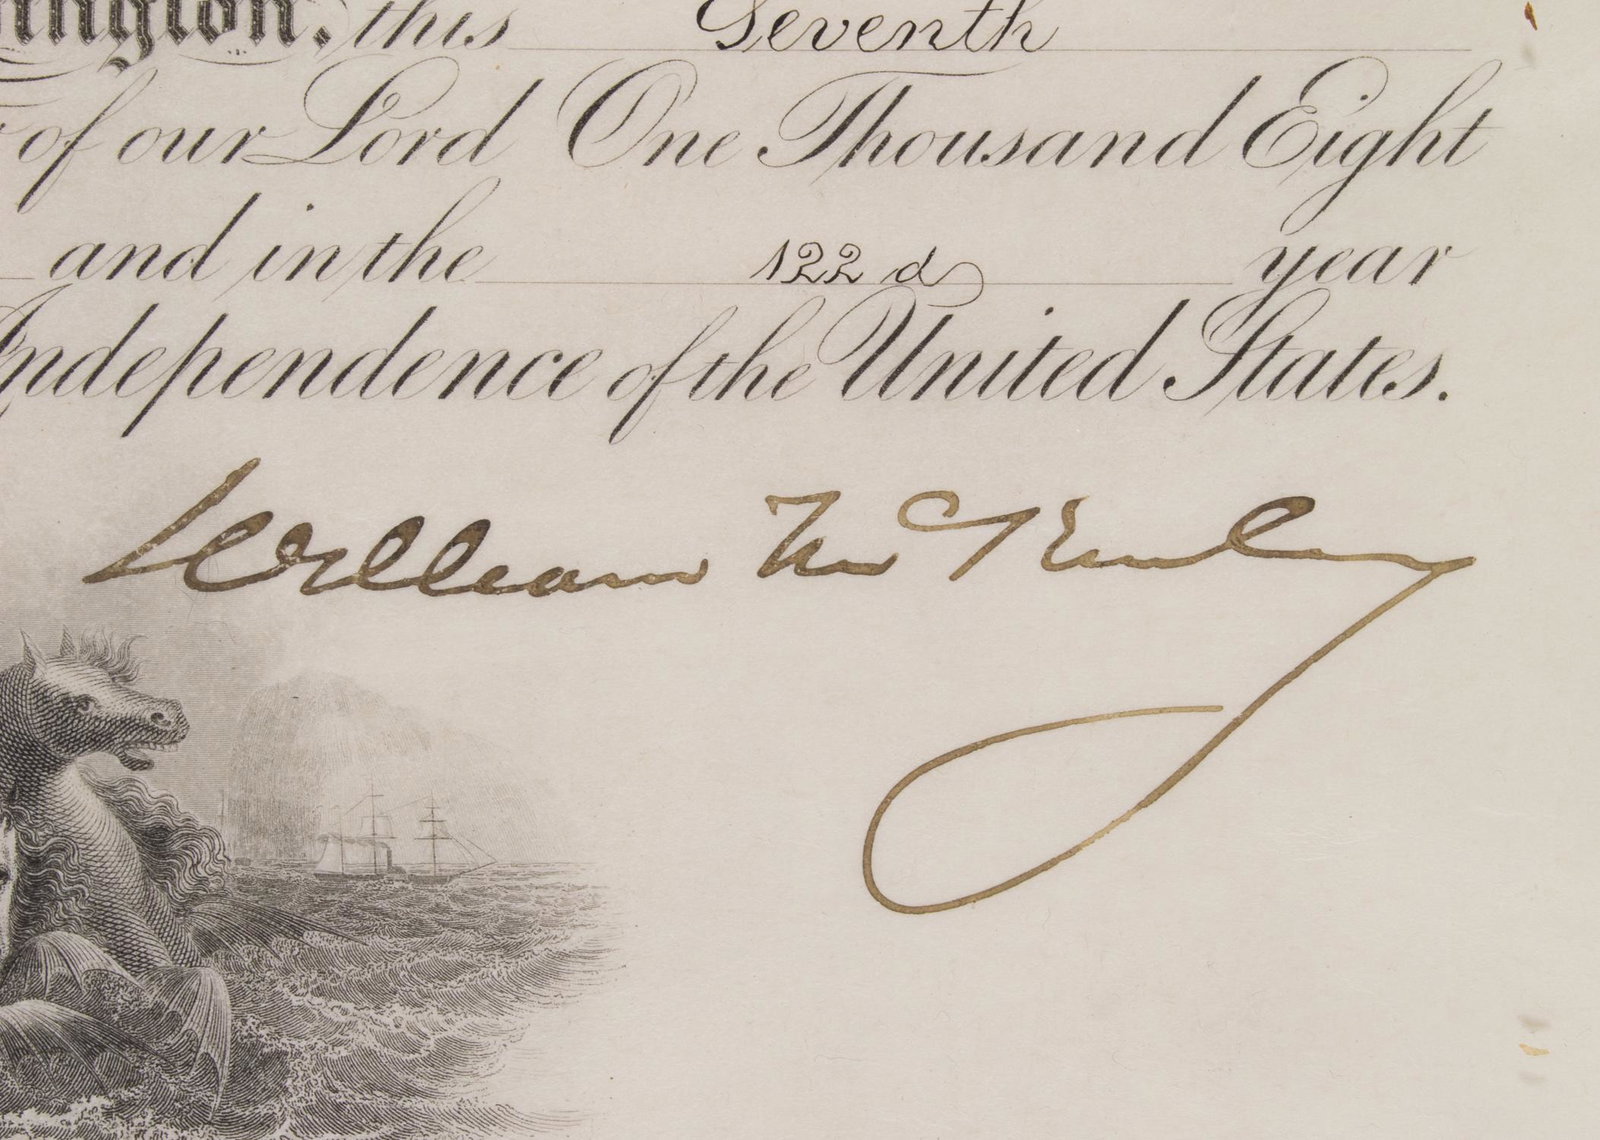 ington, this Seventh
of our Lord One Thousand Eight
and in the 122d year
Independence of the United States.
William McKinley